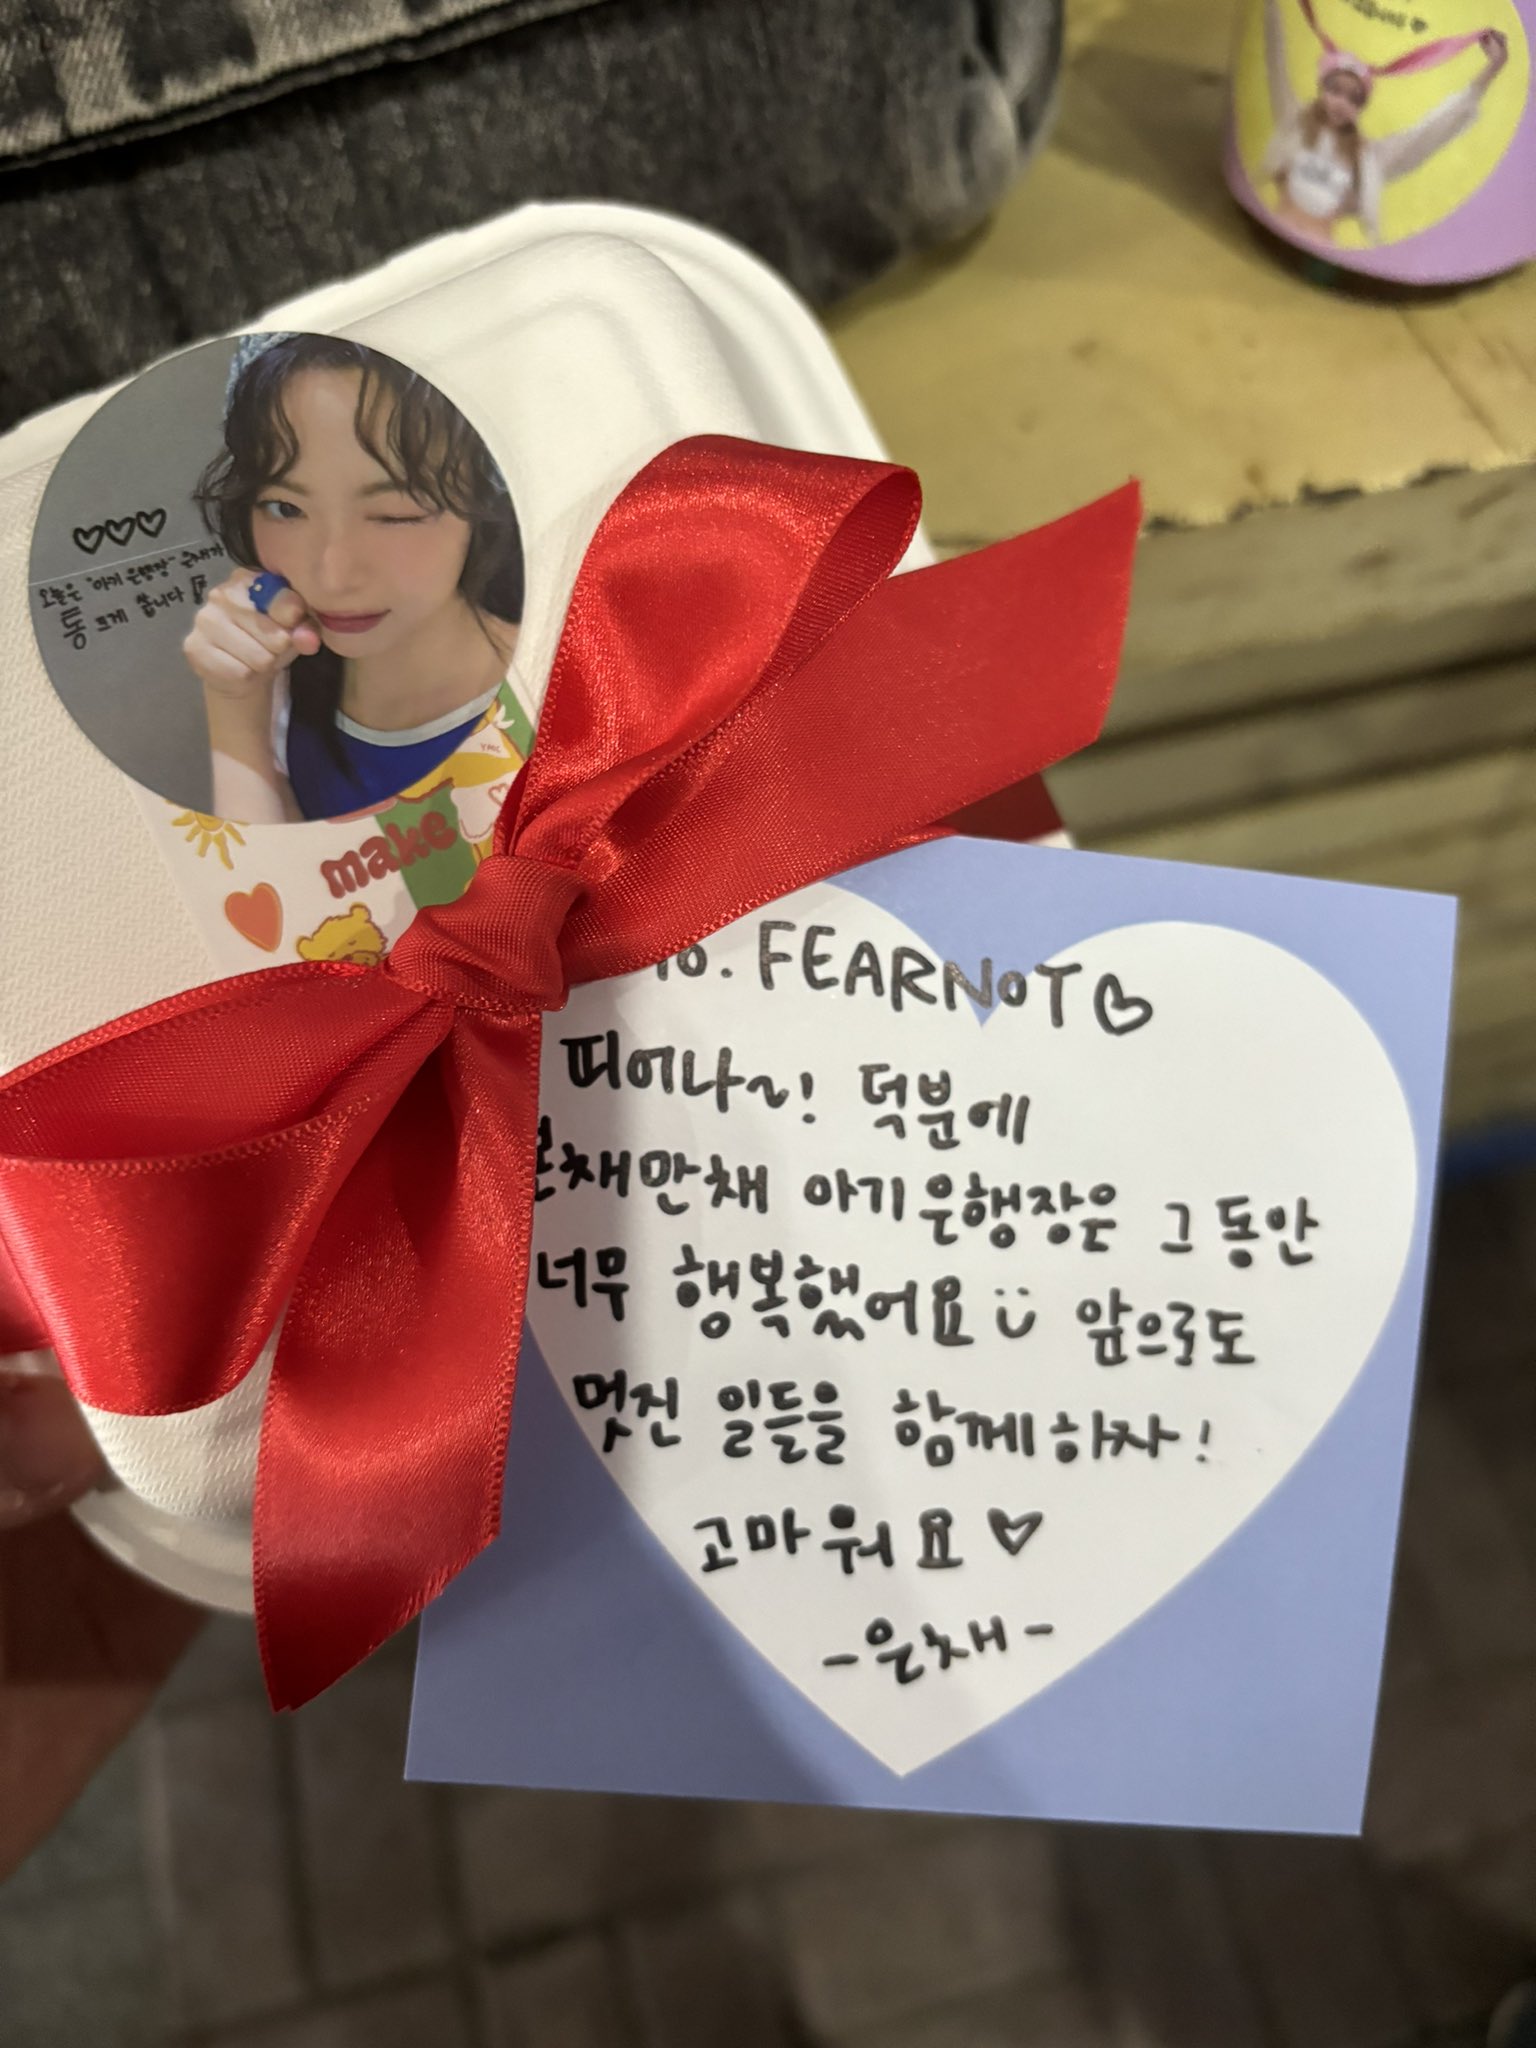 ♡♡♡
오늘은 "아기 은행장" 은채가
통 크게 쏩니다
YMC
make
To. FEARNOT♡
피어나~! 덕분에
은채만채 아기은행장은 그동안
너무 행복했어요 앞으로도
멋진 일들을 함께하자!
고마워요♡
-은채-